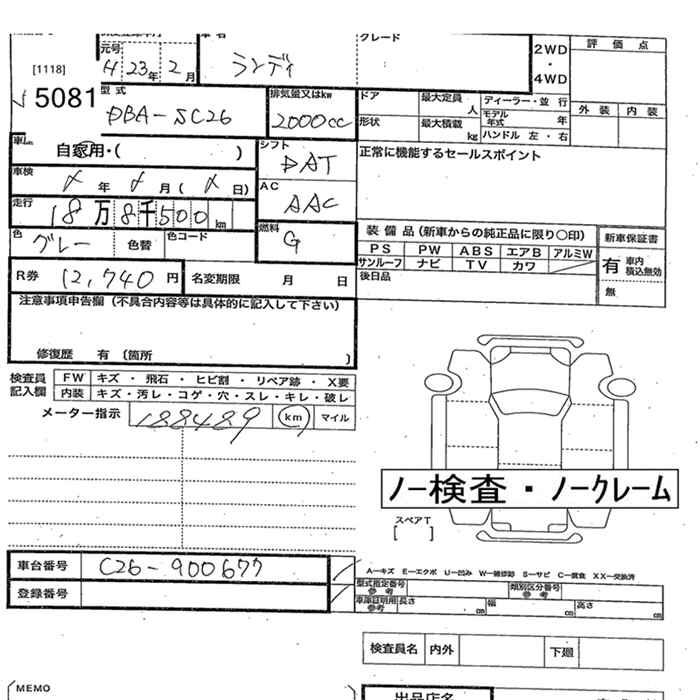 車名 グレード
元号
[1118] H 23年 2月 ランディ 2WD・4WD 評価点
5081 型式 DBA-SC26 排気量又はkw 2000cc ドア 最大定員 人 ディーラー・並行 外装 内装
形状 最大積載 kg モデル年式 年 ハンドル 左・右
自家用・( ) シフト DAT 正常に機能するセールスポイント
車検 年 月( 日) AC AAC
走行 18万8千500km 燃料 G 装備品(新車からの純正品に限り〇印) 新車保証書
色 グレー 色替 色コード PS PW ABS エアB アルミW 有 車内積込無効
サンルーフ ナビ TV カワ
R券 12,740円 名変期限 月 日 後日品 無
注意事項申告欄(不具合内容等は具体的に記入して下さい)
修復歴 有(箇所 )
検査員記入欄 FW キズ・飛石・ヒビ割・リペア跡・X要
内装 キズ・汚レ・コゲ・穴・スレ・キレ・破レ
メーター指示 188489 km マイル
ノー検査・ノークレーム
スペアT
[ ]
車台番号 C26-900677 A―キズ E―エクボ U―凹み W―補修跡 S―サビ C―腐食 XX―交換済
登録番号 型式指定番号 参考 類別区分番号 参考
車庫証明用参考 長さ cm 幅 cm 高さ cm
検査員名 内外 下廻
MEMO 出品店名